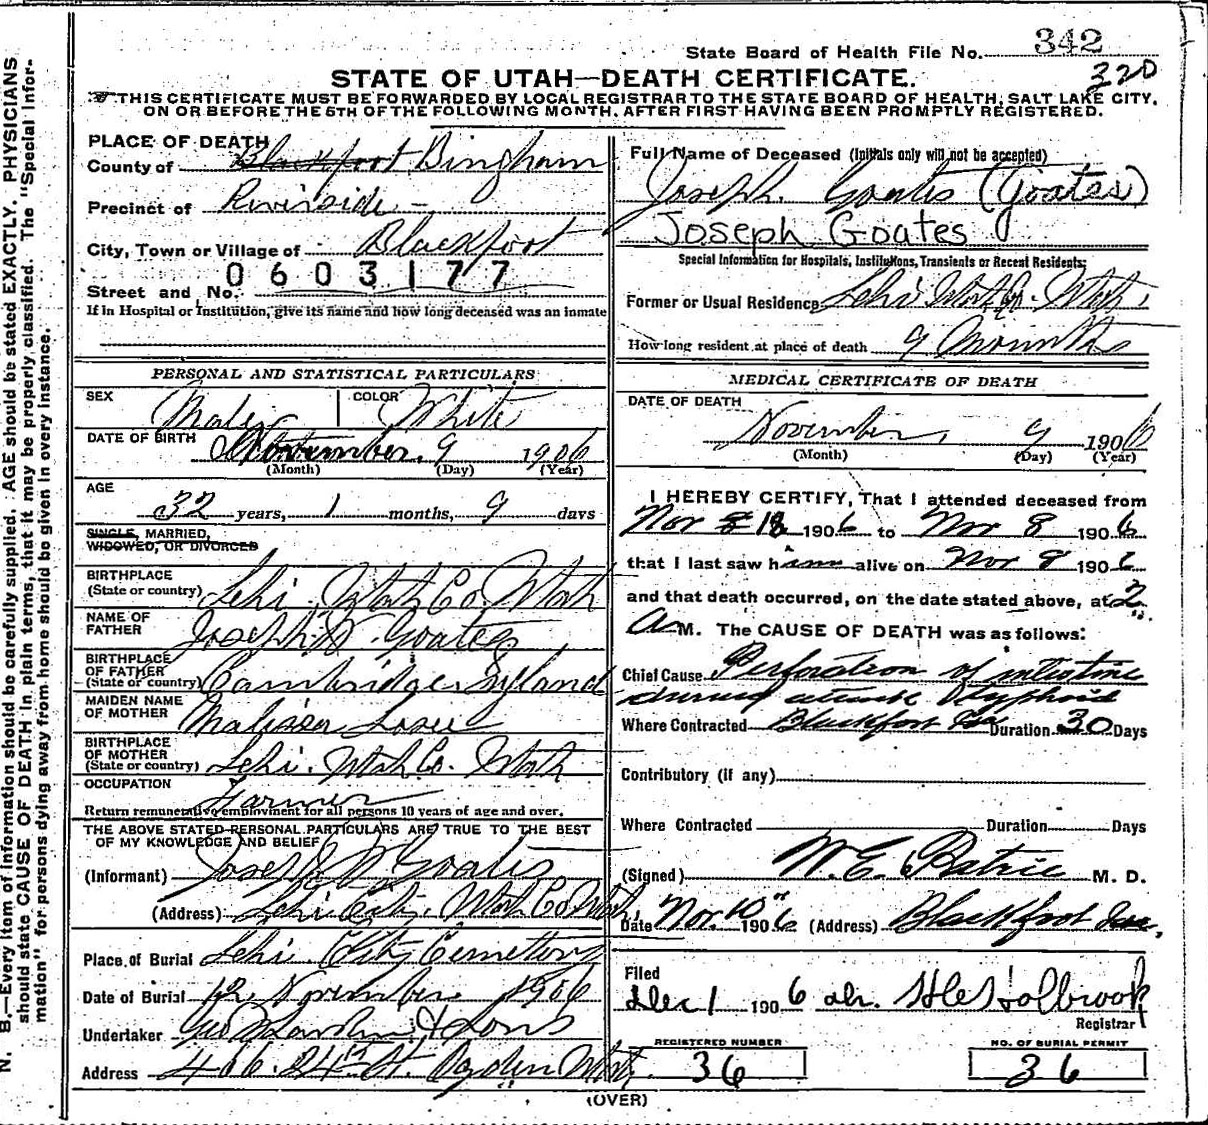 State Board of Health File No. 342
320
STATE OF UTAH—DEATH CERTIFICATE.
THIS CERTIFICATE MUST BE FORWARDED BY LOCAL REGISTRAR TO THE STATE BOARD OF HEALTH, SALT LAKE CITY,
ON OR BEFORE THE 5TH OF THE FOLLOWING MONTH, AFTER FIRST HAVING BEEN PROMPTLY REGISTERED.
PLACE OF DEATH
County of Blackfoot Bingham
Precinct of Riverside
City, Town or Village of Blackfoot
0603177
Street and No.
If in Hospital or Institution, give its name and how long deceased was an inmate
Full Name of Deceased (Initials only will not be accepted)
Joseph Goates (Goates)
Joseph Goates
Special Information for Hospitals, Institutions, Transients or Recent Residents:
Former or Usual Residence Lehi Utah Co. Utah,
How long resident at place of death 9 Months
PERSONAL AND STATISTICAL PARTICULARS
SEX Male COLOR White
DATE OF BIRTH November 9 1906
(Month) (Day) (Year)
AGE
32 years, 1 months, 9 days
SINGLE, MARRIED,
WIDOWED, OR DIVORCED
BIRTHPLACE
(State or country) Lehi Utah Co. Utah
NAME OF
FATHER Joseph W. Goates
BIRTHPLACE
OF FATHER
(State or country) Cambridge
MAIDEN NAME
OF MOTHER Malissa
BIRTHPLACE
OF MOTHER
(State or country) Lehi. Utah Co. Utah
OCCUPATION
Farmer
Return remunerative employment for all persons 10 years of age and over.
THE ABOVE STATED PERSONAL PARTICULARS ARE TRUE TO THE BEST
OF MY KNOWLEDGE AND BELIEF
(Informant) Joseph W Goates
(Address) Lehi City, Utah Co Utah,
Place of Burial Lehi City Cemetery
Date of Burial 12 November 1906
Undertaker & Sons
Address 406. 24th St. Ogden Utah
MEDICAL CERTIFICATE OF DEATH
DATE OF DEATH
November, 9 1906
(Month) (Day) (Year)
I HEREBY CERTIFY, That I attended deceased from
Nov 1906 to Nov 8 1906
that I last saw him alive on Nov 8 1906
and that death occurred, on the date stated above, at 2
A M. The CAUSE OF DEATH was as follows:
Chief Cause Perforation of intestine
Typhoid
Where Contracted Blackfoot Ida Duration 30 Days
Contributory (if any)
Where Contracted Duration Days
(Signed) W. E. Patrie M. D.
Date Nov 10 1906 (Address) Blackfoot Ida,
Filed
Dec 1 1906 Holbrook
Registrar
REGISTERED NUMBER
36
NO. OF BURIAL PERMIT
36
(OVER)
N. B.—Every item of information should be carefully supplied. AGE should be stated EXACTLY. PHYSICIANS
should state CAUSE OF DEATH in plain terms, that it may be properly classified. The "Special Infor-
mation" for persons dying away from home should be given in every instance.